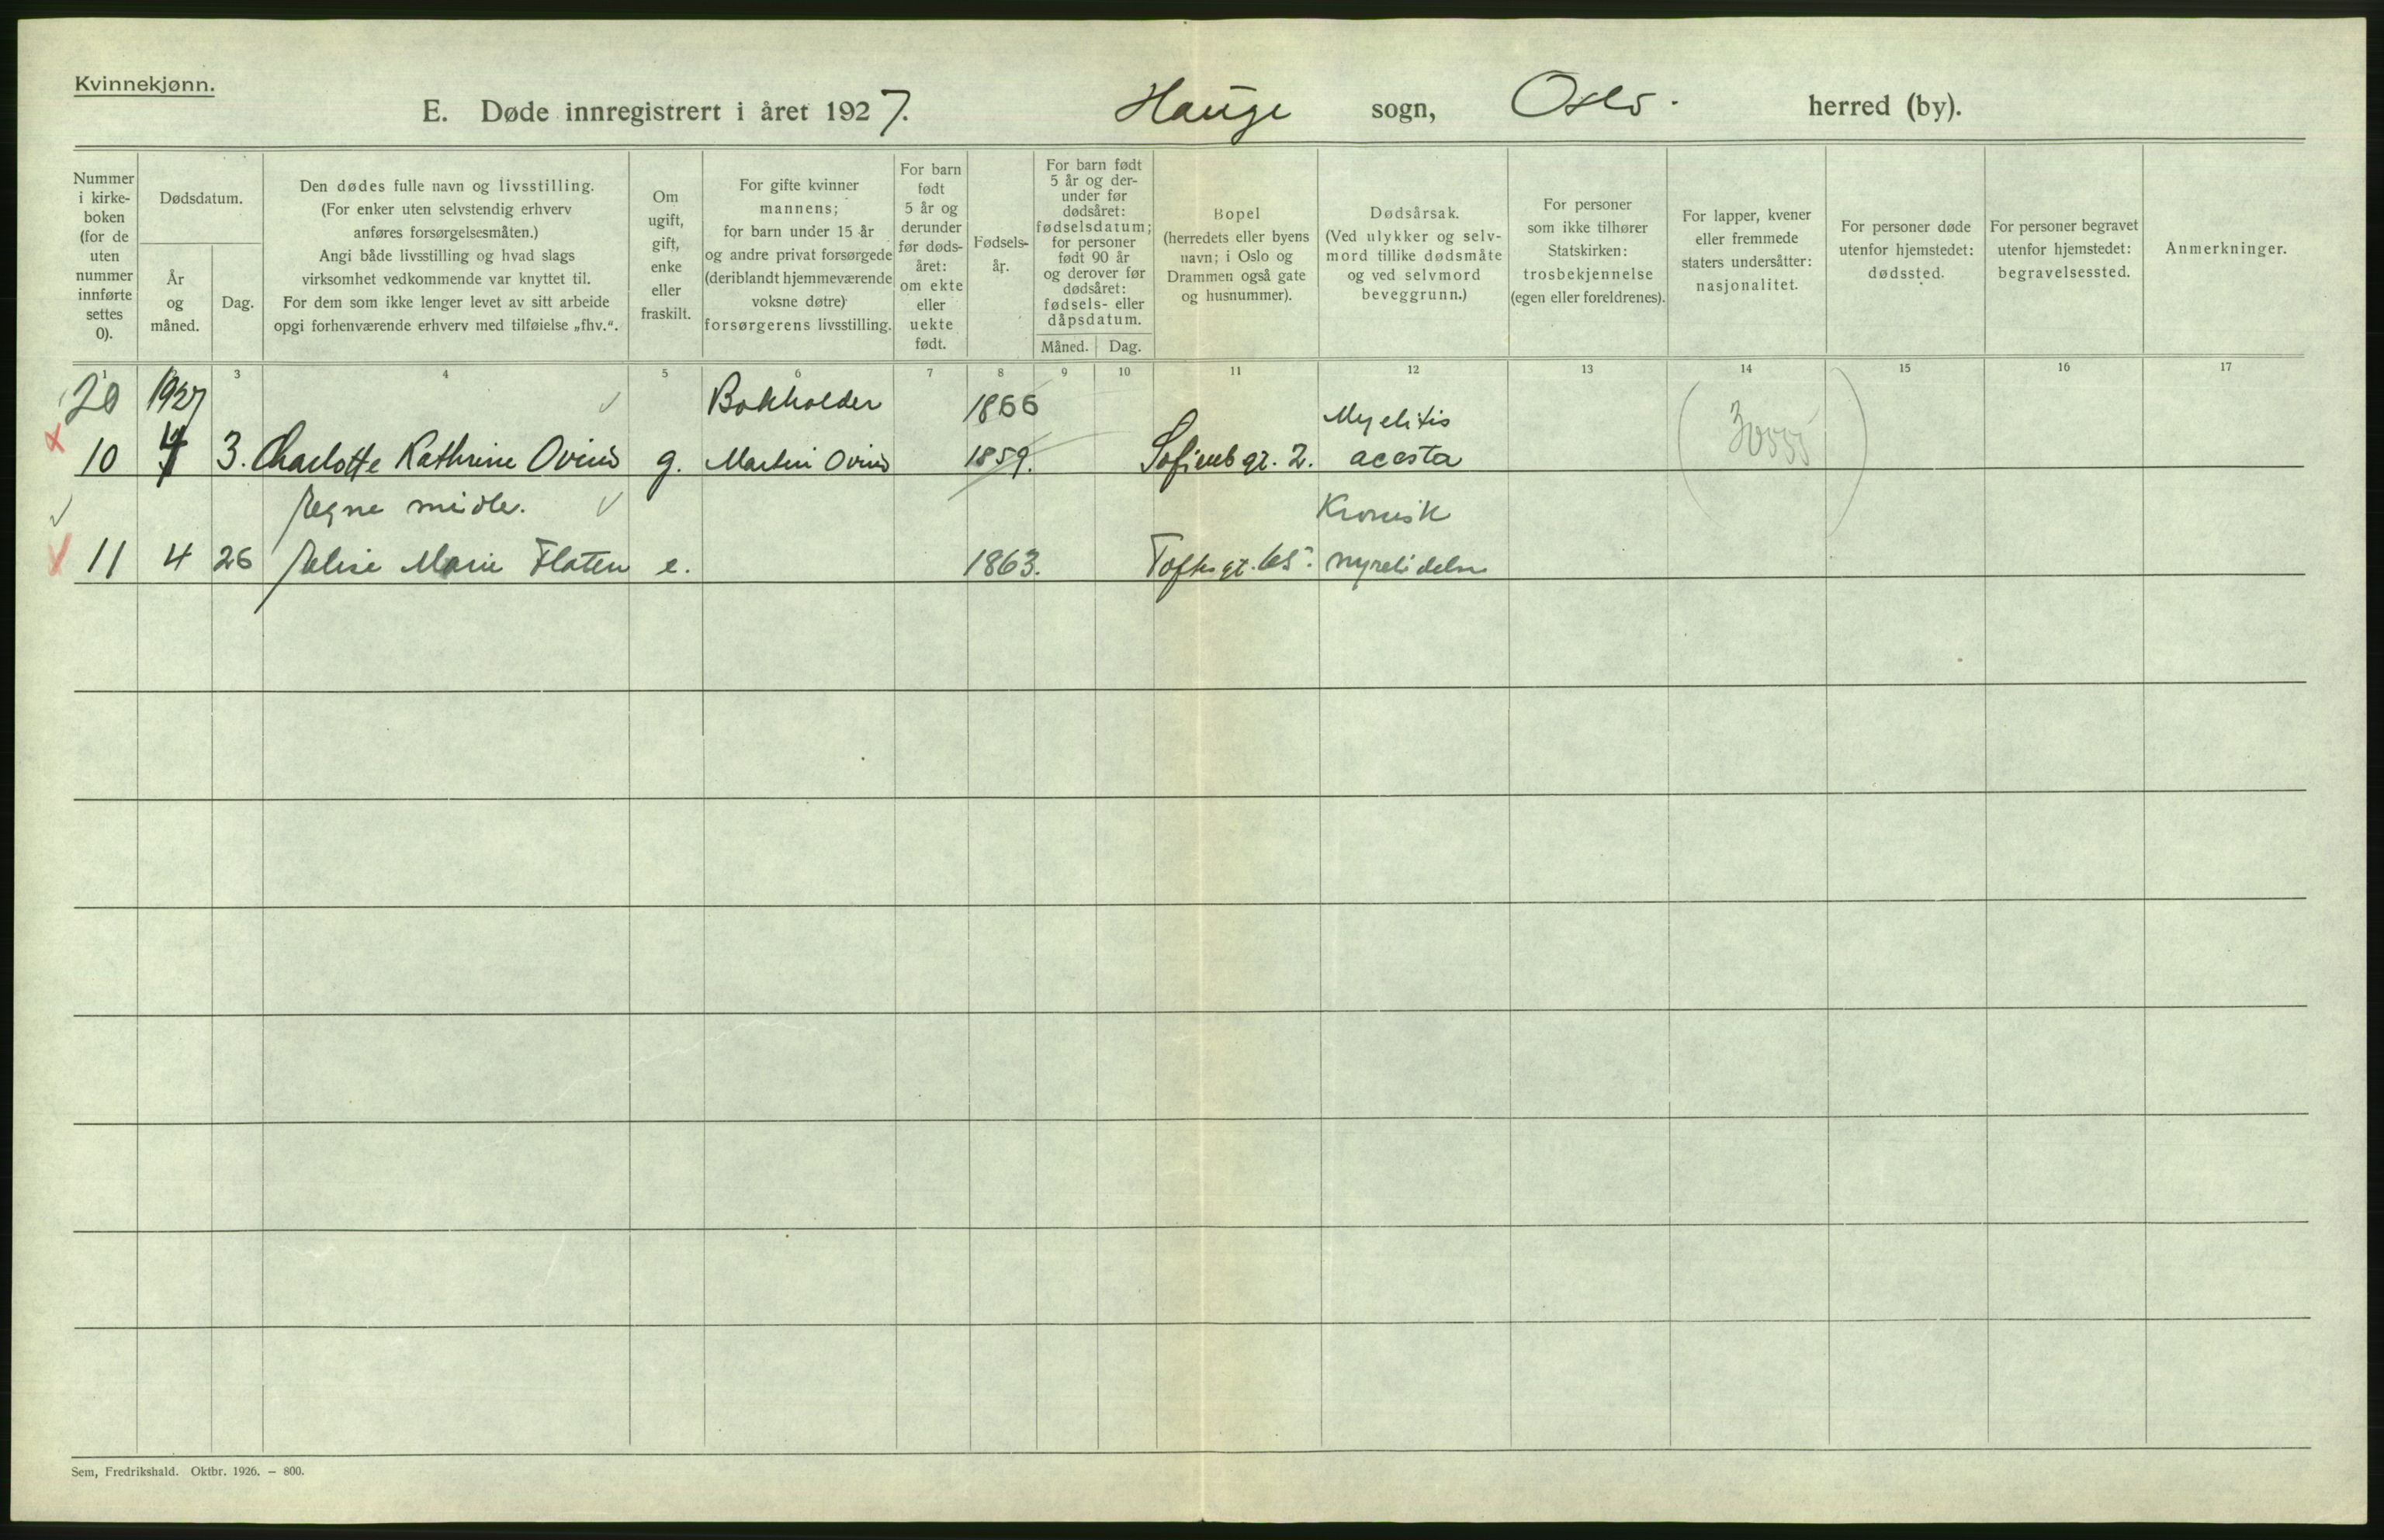 Kvinnekjønn.
E. Døde innregistrert i året 1927. Hauge sogn, Oslo. herred (by).
Nummer i kirkeboken (for de uten nummer innførte settes 0).
Dødsdatum.
År og måned.
Dag.
Den dødes fulle navn og livsstilling.
(For enker uten selvstendig erhverv
anføres forsørgelsesmåten.)
Angi både livsstilling og hvad slags
virksomhet vedkommende var knyttet til.
For dem som ikke lenger levet av sitt arbeide
opgi forhenværende erhverv med tilføielse „fhv.“.
Om
ugift,
gift,
enke
eller
fraskilt.
For gifte kvinner
mannens;
for barn under 15 år
og andre privat forsørgede
(deriblandt hjemmeværende
voksne døtre)
forsørgerens livsstilling.
For barn
født
5 år og
derunder
før døds-
året:
om ekte
eller
uekte
født.
Fødsels-
år.
For barn født
5 år og der-
under før
dødsåret:
fødselsdatum;
for personer
født 90 år
og derover før
dødsåret:
fødsels- eller
dåpsdatum.
Måned. Dag.
Bopel
(herredets eller byens
navn; i Oslo og
Drammen også gate
og husnummer).
Dødsårsak.
(Ved ulykker og selv-
mord tillike dødsmåte
og ved selvmord
beveggrunn.)
For personer
som ikke tilhører
Statskirken:
trosbekjennelse
(egen eller foreldrenes).
For lapper, kvener
eller fremmede
staters undersåtter:
nasjonalitet.
For personer døde
utenfor hjemstedet:
dødssted.
For personer begravet
utenfor hjemstedet:
begravelsessted.
Anmerkninger.
1 3 4 5 6 7 8 9 10 11 12 13 14 15 16 17
20 1927 Bokholder 1866 Myelitis
10 4 3. Charlotte Kathrine Ovius g. Martin Ovius 1859. Sofienbgt. 2. acosta
egne midle. Kronisk
11 4 26 Elise Marie Flaten e. 1863. Toftesgt. 65. nyrelidelse
Sem, Fredrikshald. Oktbr. 1926. – 800.